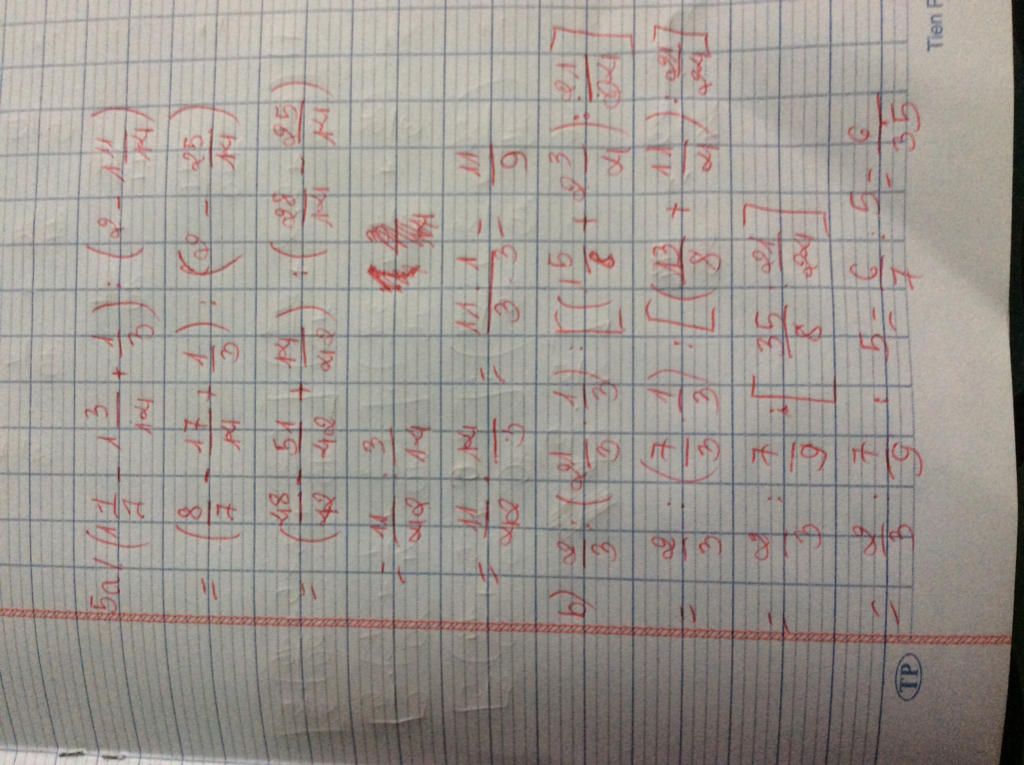 5a/ (1 1/7 - 1 3/14 + 1/3) : (2 - 1 11/14)
= (8/7 - 17/14 + 1/3) : (2 - 25/14)
= (48/42 - 51/42 + 14/42) : (28/14 - 25/14)
= 11/42 : 3/14
= 11/42 . 14/3 = 11 . 1/3 . 3 = 11/9
b) 2/3 : (2 1/3 . 1/3) : [(1 5/8 + 2 3/4) : 21/24]
= 2/3 : (7/3 . 1/3) : [(13/8 + 11/4) : 21/24]
= 2/3 : 7/9 : [35/8 : 21/24]
= 2/3 : 7/9 : 5 = 6/7 : 5 = 6/35
TP
Tien